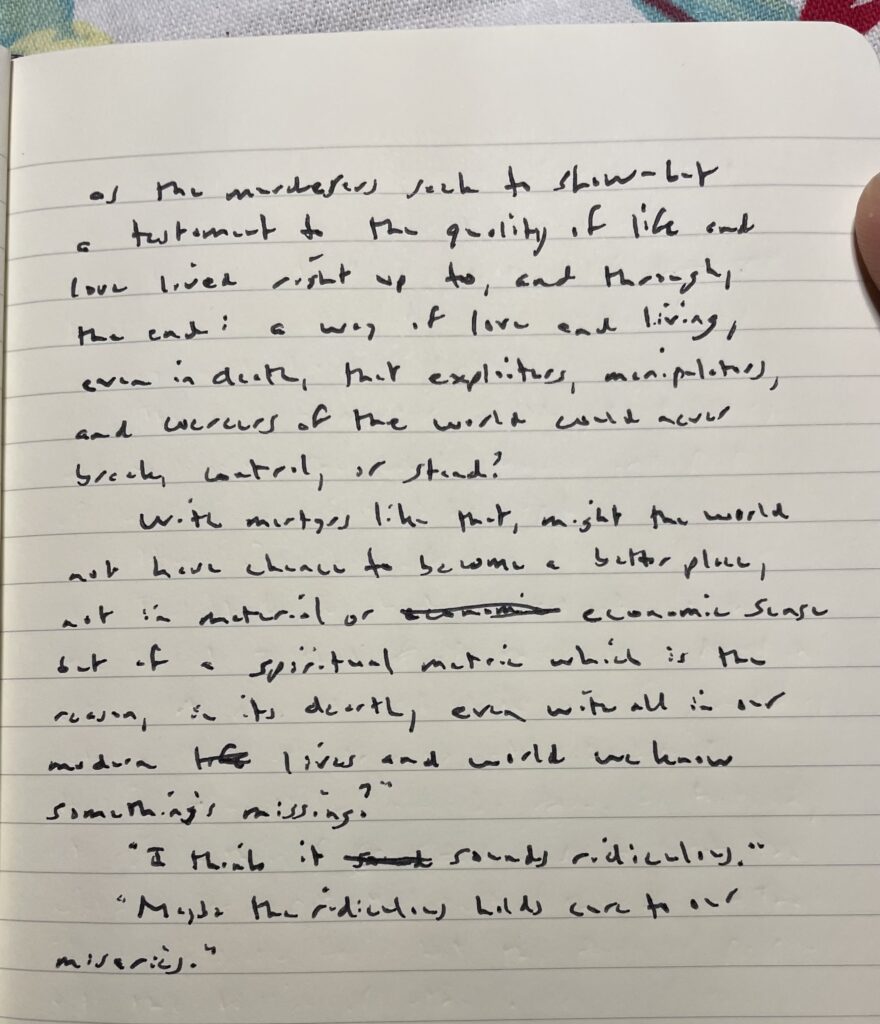 as the murderers seek to show-but
a testament to the quality of life and
love lived right up to, and through,
the end: a way of love and living,
even in death, that exploiters, manipulators,
and coercers of the world could never
break, control, or stand?
With martyrs like that, might the world
not have chance to become a better place,
not in material or economic economic sense
but of a spiritual metric which is the
reason, in its dearth, even with all in our
modern life lives and world we know
something's missing?"
"I think it sounds ridiculous."
"Maybe the ridiculous holds cure to our
miseries."